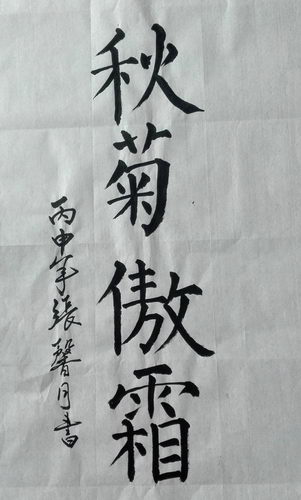 秋菊傲霜
丙申年張馨月書